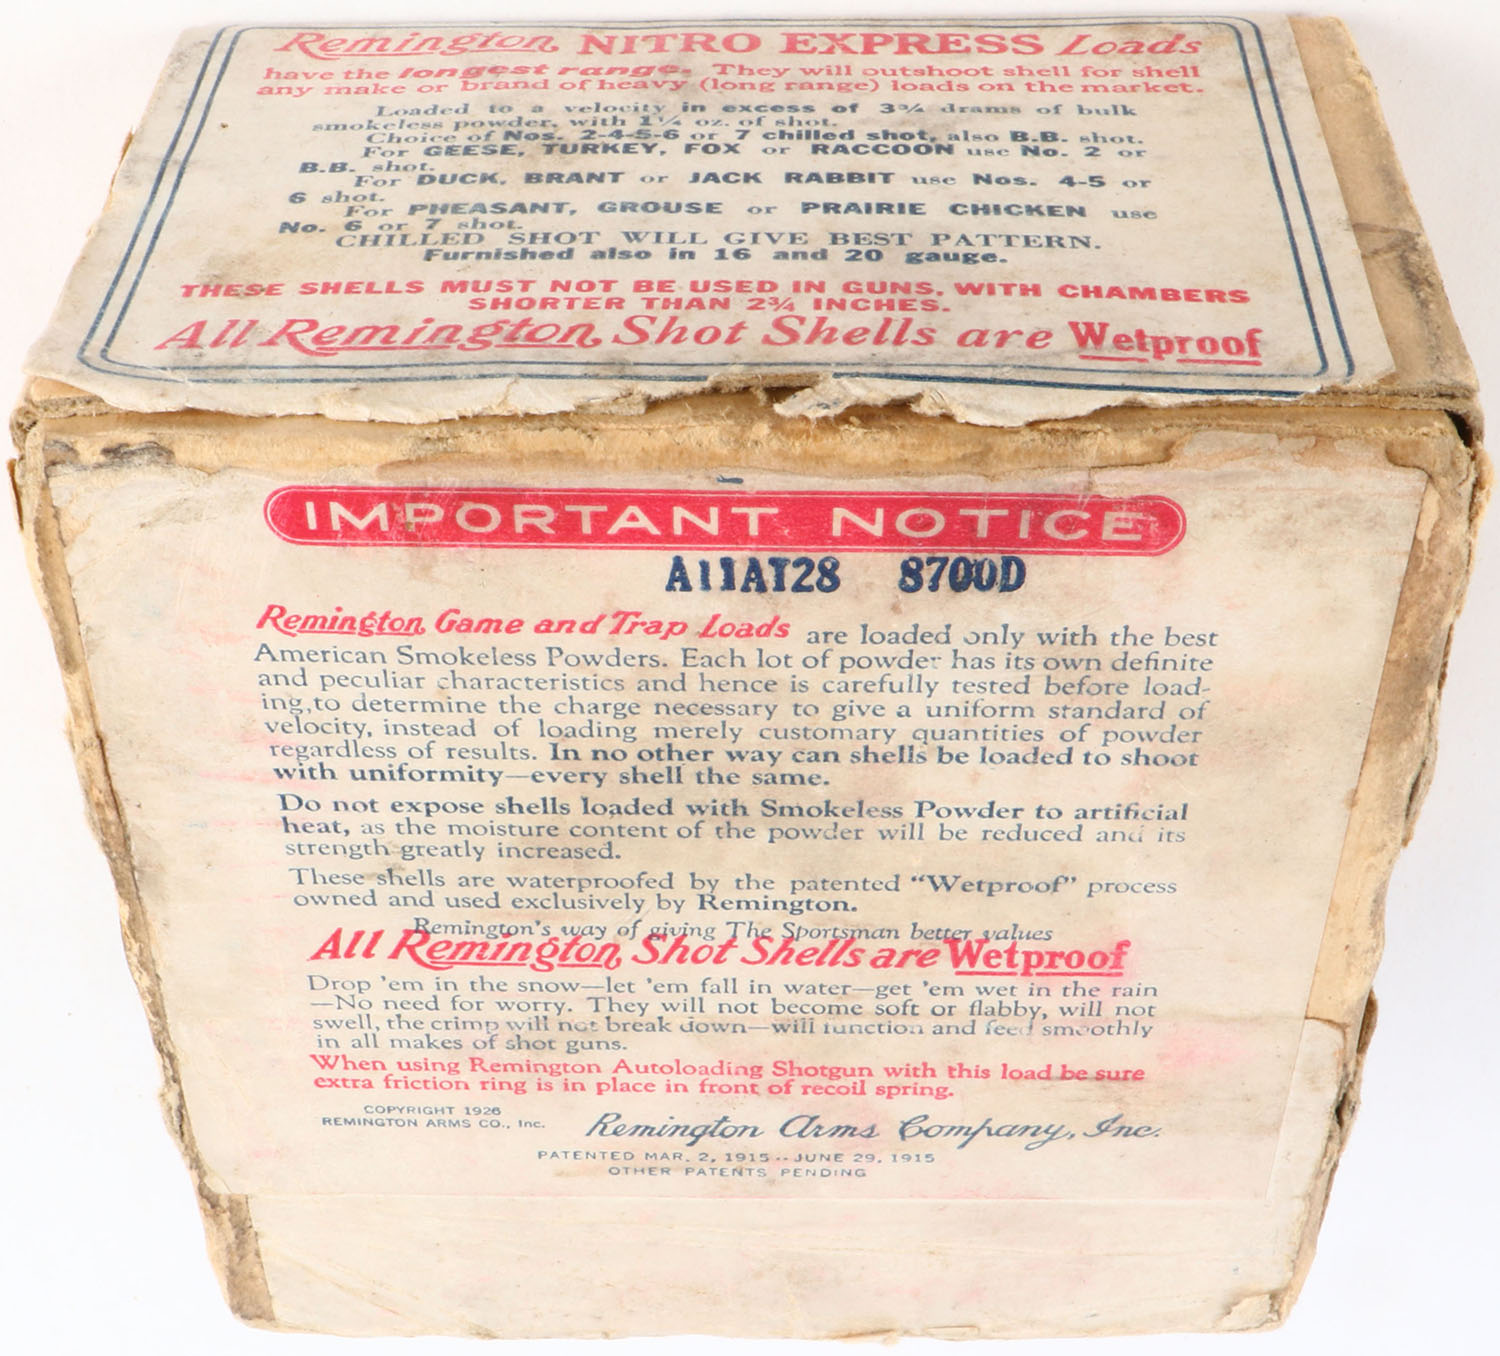 Remington NITRO EXPRESS Loads
have the longest range. They will outshoot shell for shell
any make or brand of heavy (long range) loads on the market.
Loaded to a velocity in excess of 3¾ drams of bulk
smokeless powder, with 1¼ oz. of shot.
Choice of Nos. 2-4-5-6 or 7 chilled shot, also B.B. shot.
For GEESE, TURKEY, FOX or RACCOON use No. 2 or
B.B. shot.
For DUCK, BRANT or JACK RABBIT use Nos. 4-5 or
6 shot.
For PHEASANT, GROUSE or PRAIRIE CHICKEN use
No. 6 or 7 shot.
CHILLED SHOT WILL GIVE BEST PATTERN.
Furnished also in 16 and 20 gauge.
THESE SHELLS MUST NOT BE USED IN GUNS, WITH CHAMBERS
SHORTER THAN 2¾ INCHES.
All Remington Shot Shells are Wetproof
IMPORTANT NOTICE
A11AT28 8700D
Remington Game and Trap Loads are loaded only with the best
American Smokeless Powders. Each lot of powder has its own definite
and peculiar characteristics and hence is carefully tested before load-
ing, to determine the charge necessary to give a uniform standard of
velocity, instead of loading merely customary quantities of powder
regardless of results. In no other way can shells be loaded to shoot
with uniformity—every shell the same.
Do not expose shells loaded with Smokeless Powder to artificial
heat, as the moisture content of the powder will be reduced and its
strength greatly increased.
These shells are waterproofed by the patented "Wetproof" process
owned and used exclusively by Remington.
Remington's way of giving The Sportsman better values
All Remington Shot Shells are Wetproof
Drop 'em in the snow—let 'em fall in water—get 'em wet in the rain
—No need for worry. They will not become soft or flabby, will not
swell, the crimp will not break down—will function and feed smoothly
in all makes of shot guns.
When using Remington Autoloading Shotgun with this load be sure
extra friction ring is in place in front of recoil spring.
COPYRIGHT 1926
REMINGTON ARMS CO., Inc.
Remington Arms Company, Inc.
PATENTED MAR. 2, 1915 -- JUNE 29, 1915
OTHER PATENTS PENDING